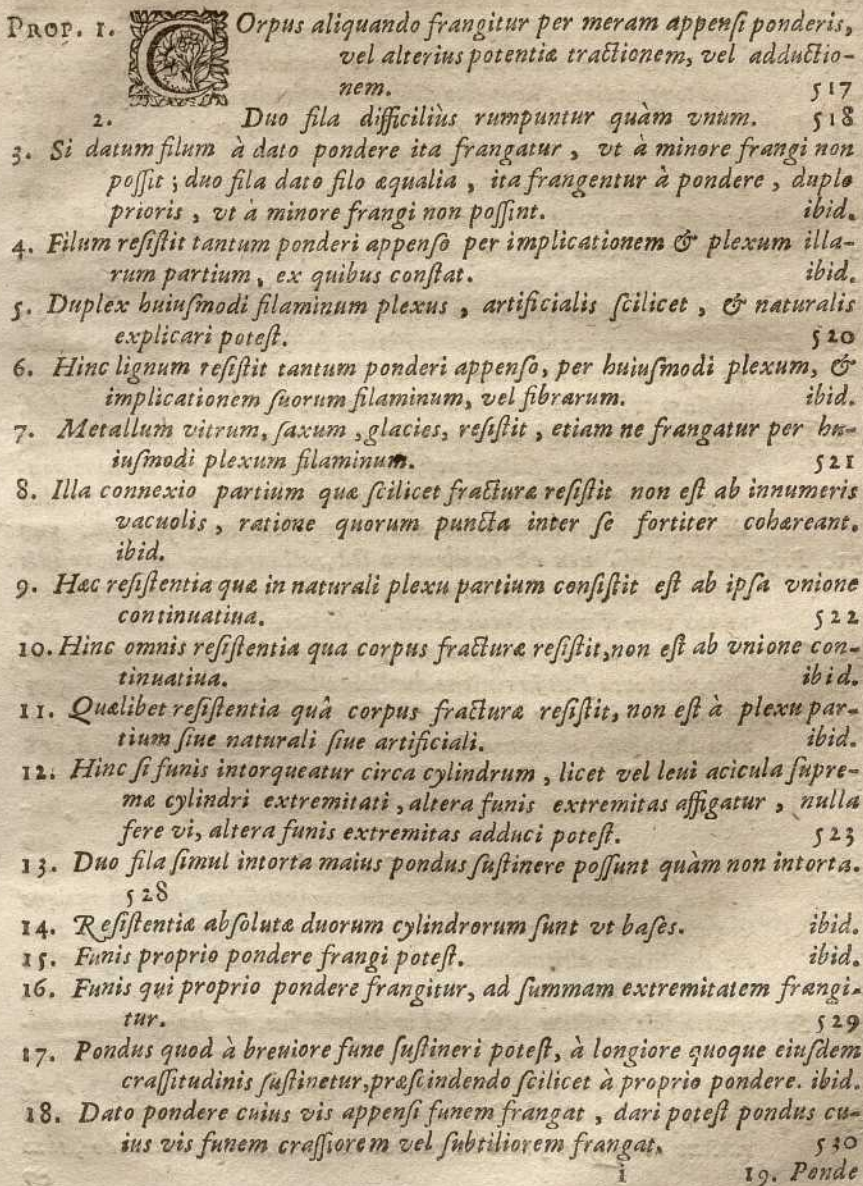 PROP. 1. COrpus aliquando frangitur per meram appensi ponderis,
vel alterius potentiæ tractionem, vel adductio-
nem. 517
2. Duo fila difficiliùs rumpuntur quàm vnum. 518
3. Si datum filum à dato pondere ita frangatur, vt à minore frangi non
possit; duo fila dato filo æqualia, ita frangentur à pondere, duplo
prioris, vt à minore frangi non possint. ibid.
4. Filum resistit tantum ponderi appenso per implicationem & plexum illa-
rum partium, ex quibus constat. ibid.
5. Duplex huiusmodi filaminum plexus, artificialis scilicet, & naturalis
explicari potest. 520
6. Hinc lignum resistit tantum ponderi appenso, per huiusmodi plexum, &
implicationem suorum filaminum, vel fibrarum. ibid.
7. Metallum vitrum, saxum, glacies, resistit, etiam ne frangatur per hu-
iusmodi plexum filaminum. 521
8. Illa connexio partium quæ scilicet fracturæ resistit non est ab innumeris
vacuolis, ratione quorum puncta inter se fortiter cohæreant.
ibid.
9. Hæc resistentia quæ in naturali plexu partium consistit est ab ipsa vnione
continuatiua. 522
10. Hinc omnis resistentia qua corpus fracturæ resistit, non est ab vnione con-
tinuatiua. ibid.
11. Quælibet resistentia quâ corpus fracturæ resistit, non est à plexu par-
tium siue naturali siue artificiali. ibid.
12. Hinc si funis intorqueatur circa cylindrum, licet vel leui acicula supre-
mæ cylindri extremitati, altera funis extremitas affigatur, nulla
fere vi, altera funis extremitas adduci potest. 523
13. Duo fila simul intorta maius pondus sustinere possunt quàm non intorta.
528
14. Resistentiæ absolutæ duorum cylindrorum sunt vt bases. ibid.
15. Funis proprio pondere frangi potest. ibid.
16. Funis qui proprio pondere frangitur, ad summam extremitatem frangi-
tur. 529
17. Pondus quod à breuiore fune sustineri potest, à longiore quoque eiusdem
crassitudinis sustinetur, præscindendo scilicet à proprio pondere. ibid.
18. Dato pondere cuius vis appensi funem frangat, dari potest pondus cu-
ius vis funem crassiorem vel subtiliorem frangat. 530
i 19. Ponde